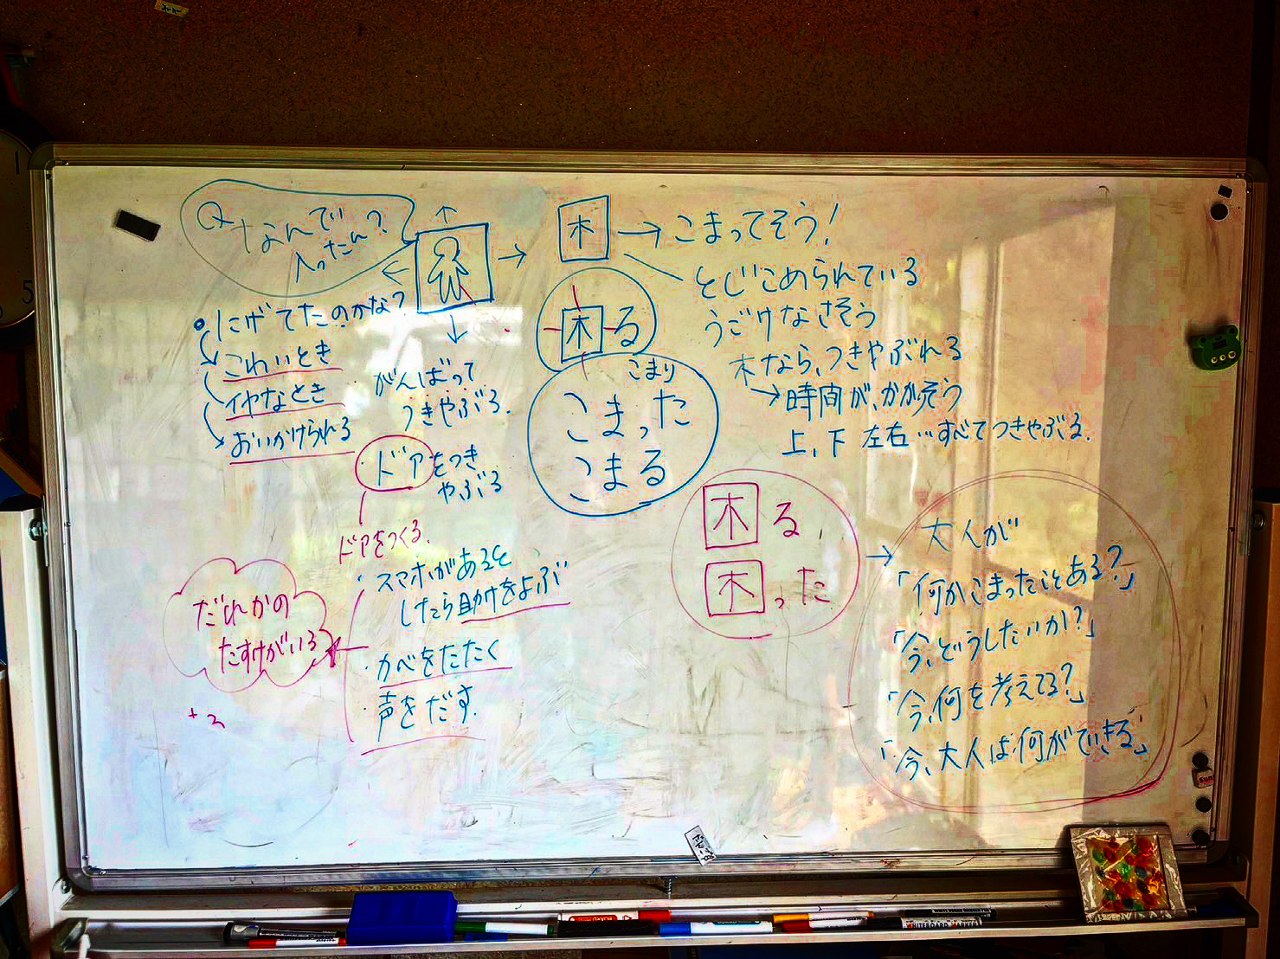 Q なんで
入ったん?
・にげてたのかな?
こわいとき
イヤなとき
おいかけられる
がんばって
つきやぶる.
・ドアをつき
やぶる
ドアをつくる.
・スマホがあると
したら助けをよぶ
・カベをたたく
声をだす.
だれかの
たすけがいる
困→こまってそう!
とじこめられている
うごけなさそう
木なら、つきやぶれる
→時間が、かかりそう
上、下 左右…すべてつきやぶる.
困る
こまり
こまった
こまる
困る
困った
→大人が
「何かこまったことある?」
「今、どうしたいか?」
「今、何を考えてる?」
「今、大人は何ができる」
WHITEBOARD MARKER